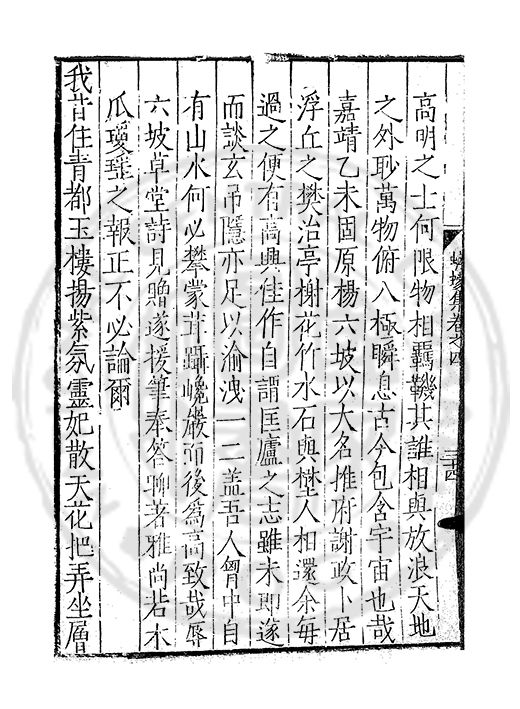 高明之士何限物相羈鞿其誰相與放浪天地
之外眇萬物俯八極瞬息古今包含宇宙也哉
嘉靖乙未固原楊六坡以大名推府謝政卜居
浮丘之樊治亭榭花竹水石與埜人相還余每
過之便有高興佳作自謂匡廬之志雖未即遂
而談玄弔隱亦足以瀹洩一二盖吾人胷中自
有山水何必攀蒙茸躡巉巖而後爲高致哉辱
六坡草堂詩見贈遂援筆奉答聊著雅尚若木
瓜瓊瑤之報正不必論爾
我昔住青都玉樓揚紫氛靈妃散天花把弄坐層
集卷之四
三十四